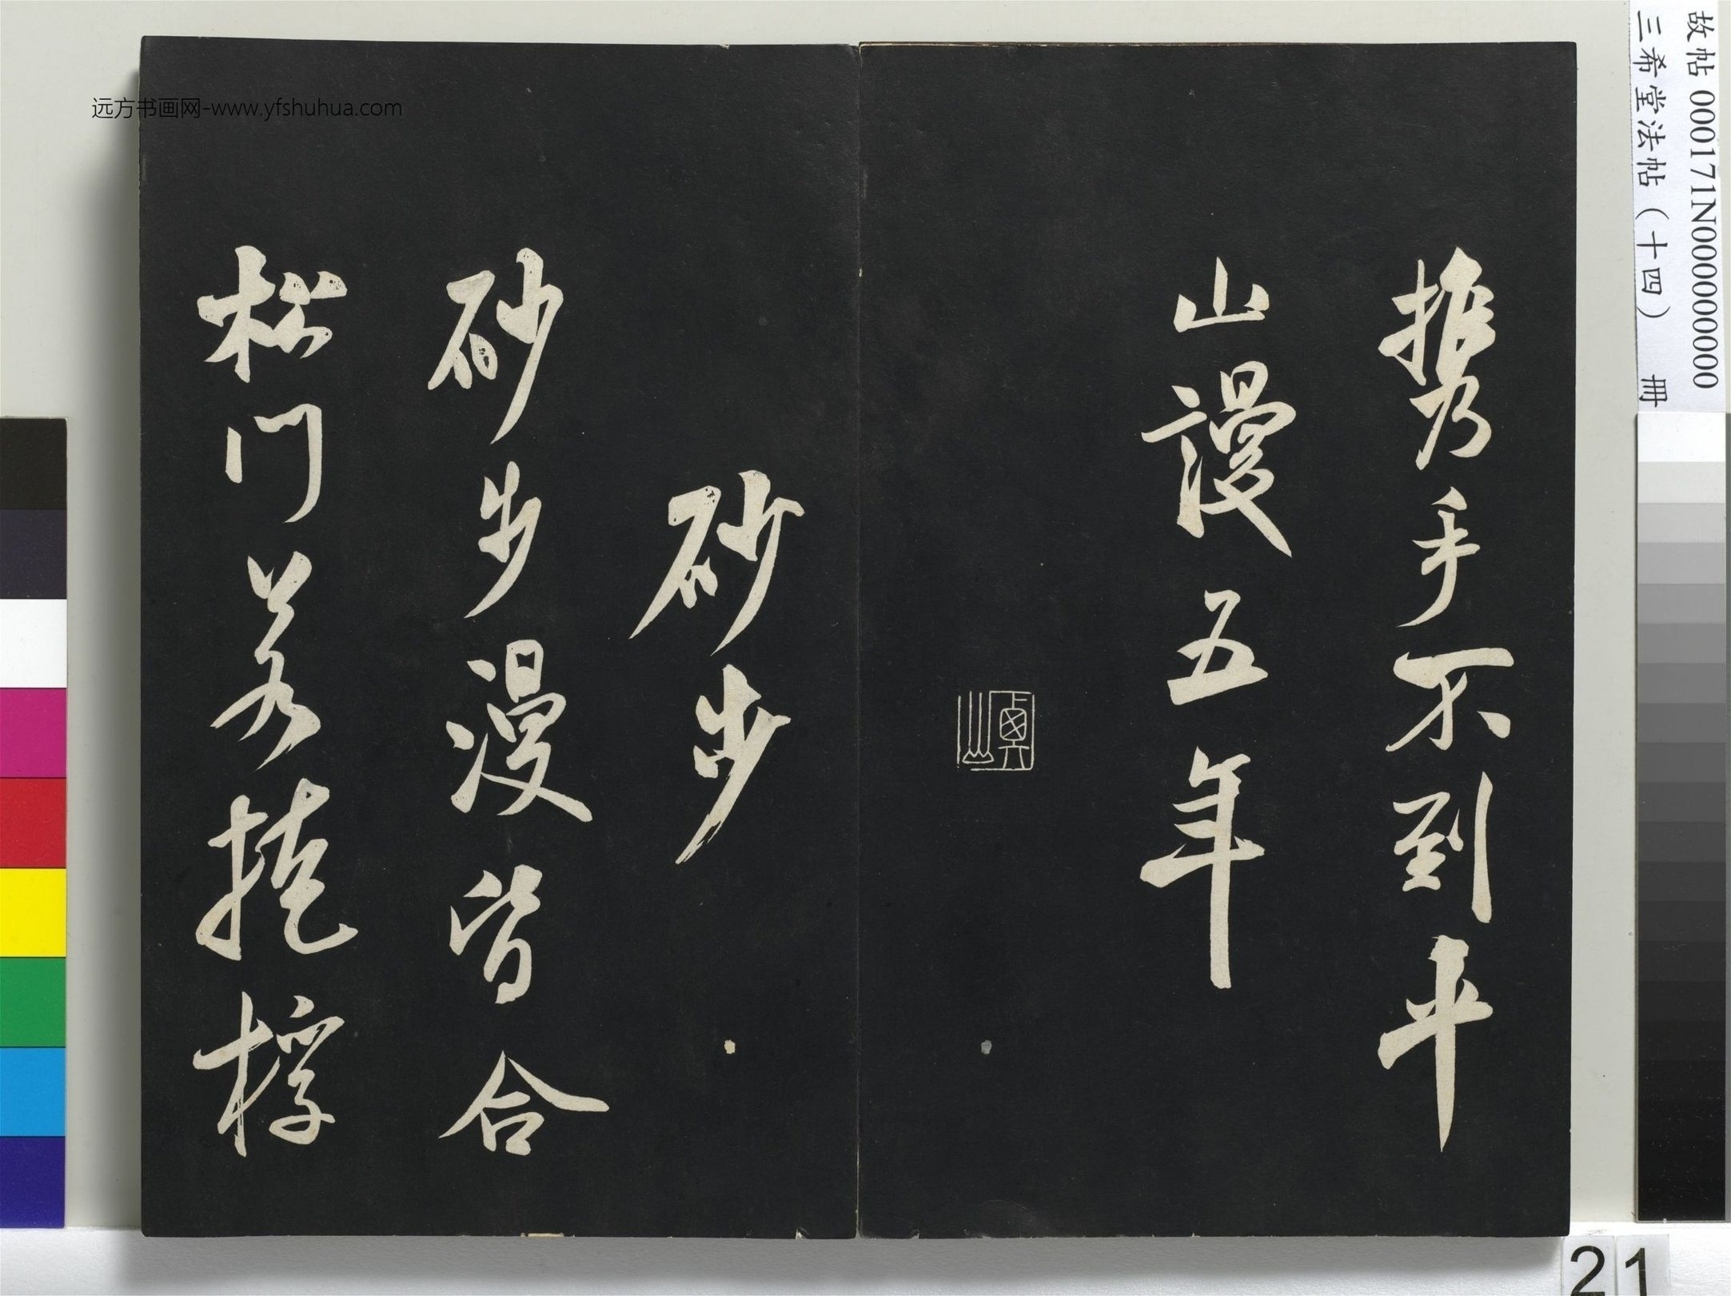 携手不到平
山謾五年
砂步
砂步漫皆合
松门若掩桴
故帖 000171N000000000
三希堂法帖（十四） 冊
远方书画网-www.yfshuhua.com
21